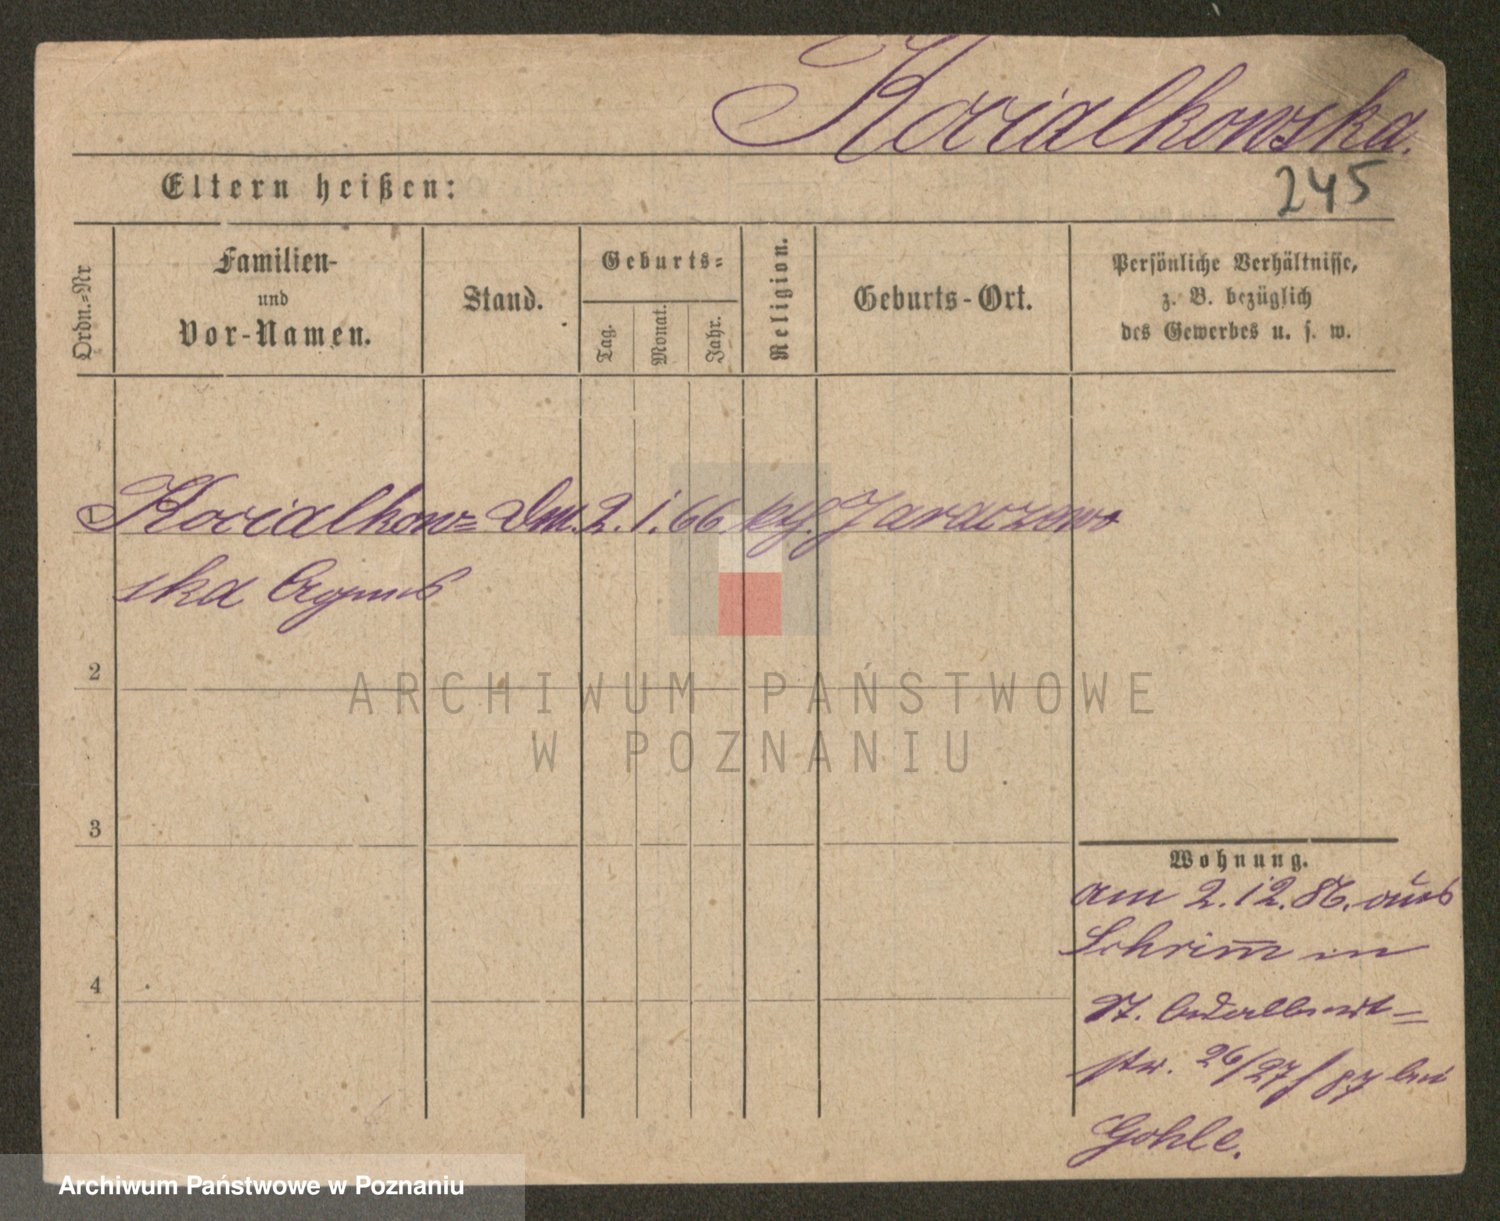 Kocialkowska.
Eltern heißen:
245
Ordn.=Nr
Familien-
und
Vor-Namen.
Stand.
Geburts=
Tag.
Monat.
Jahr.
Religion.
Geburts-Ort.
Persönliche Verhältnisse,
z. B. bezüglich
des Gewerbes u. s. w.
1 Kocialkow= 2. 1. 66. kth. Jaraczewo
ska Agnes
2
ARCHIWUM PAŃSTWOWE
W POZNANIU
3
Wohnung.
am 2.12.86. aus
Schrim in
4
St. Adalbert=
str. 26/27 / 87 bei
Gohle.
Archiwum Państwowe w Poznaniu